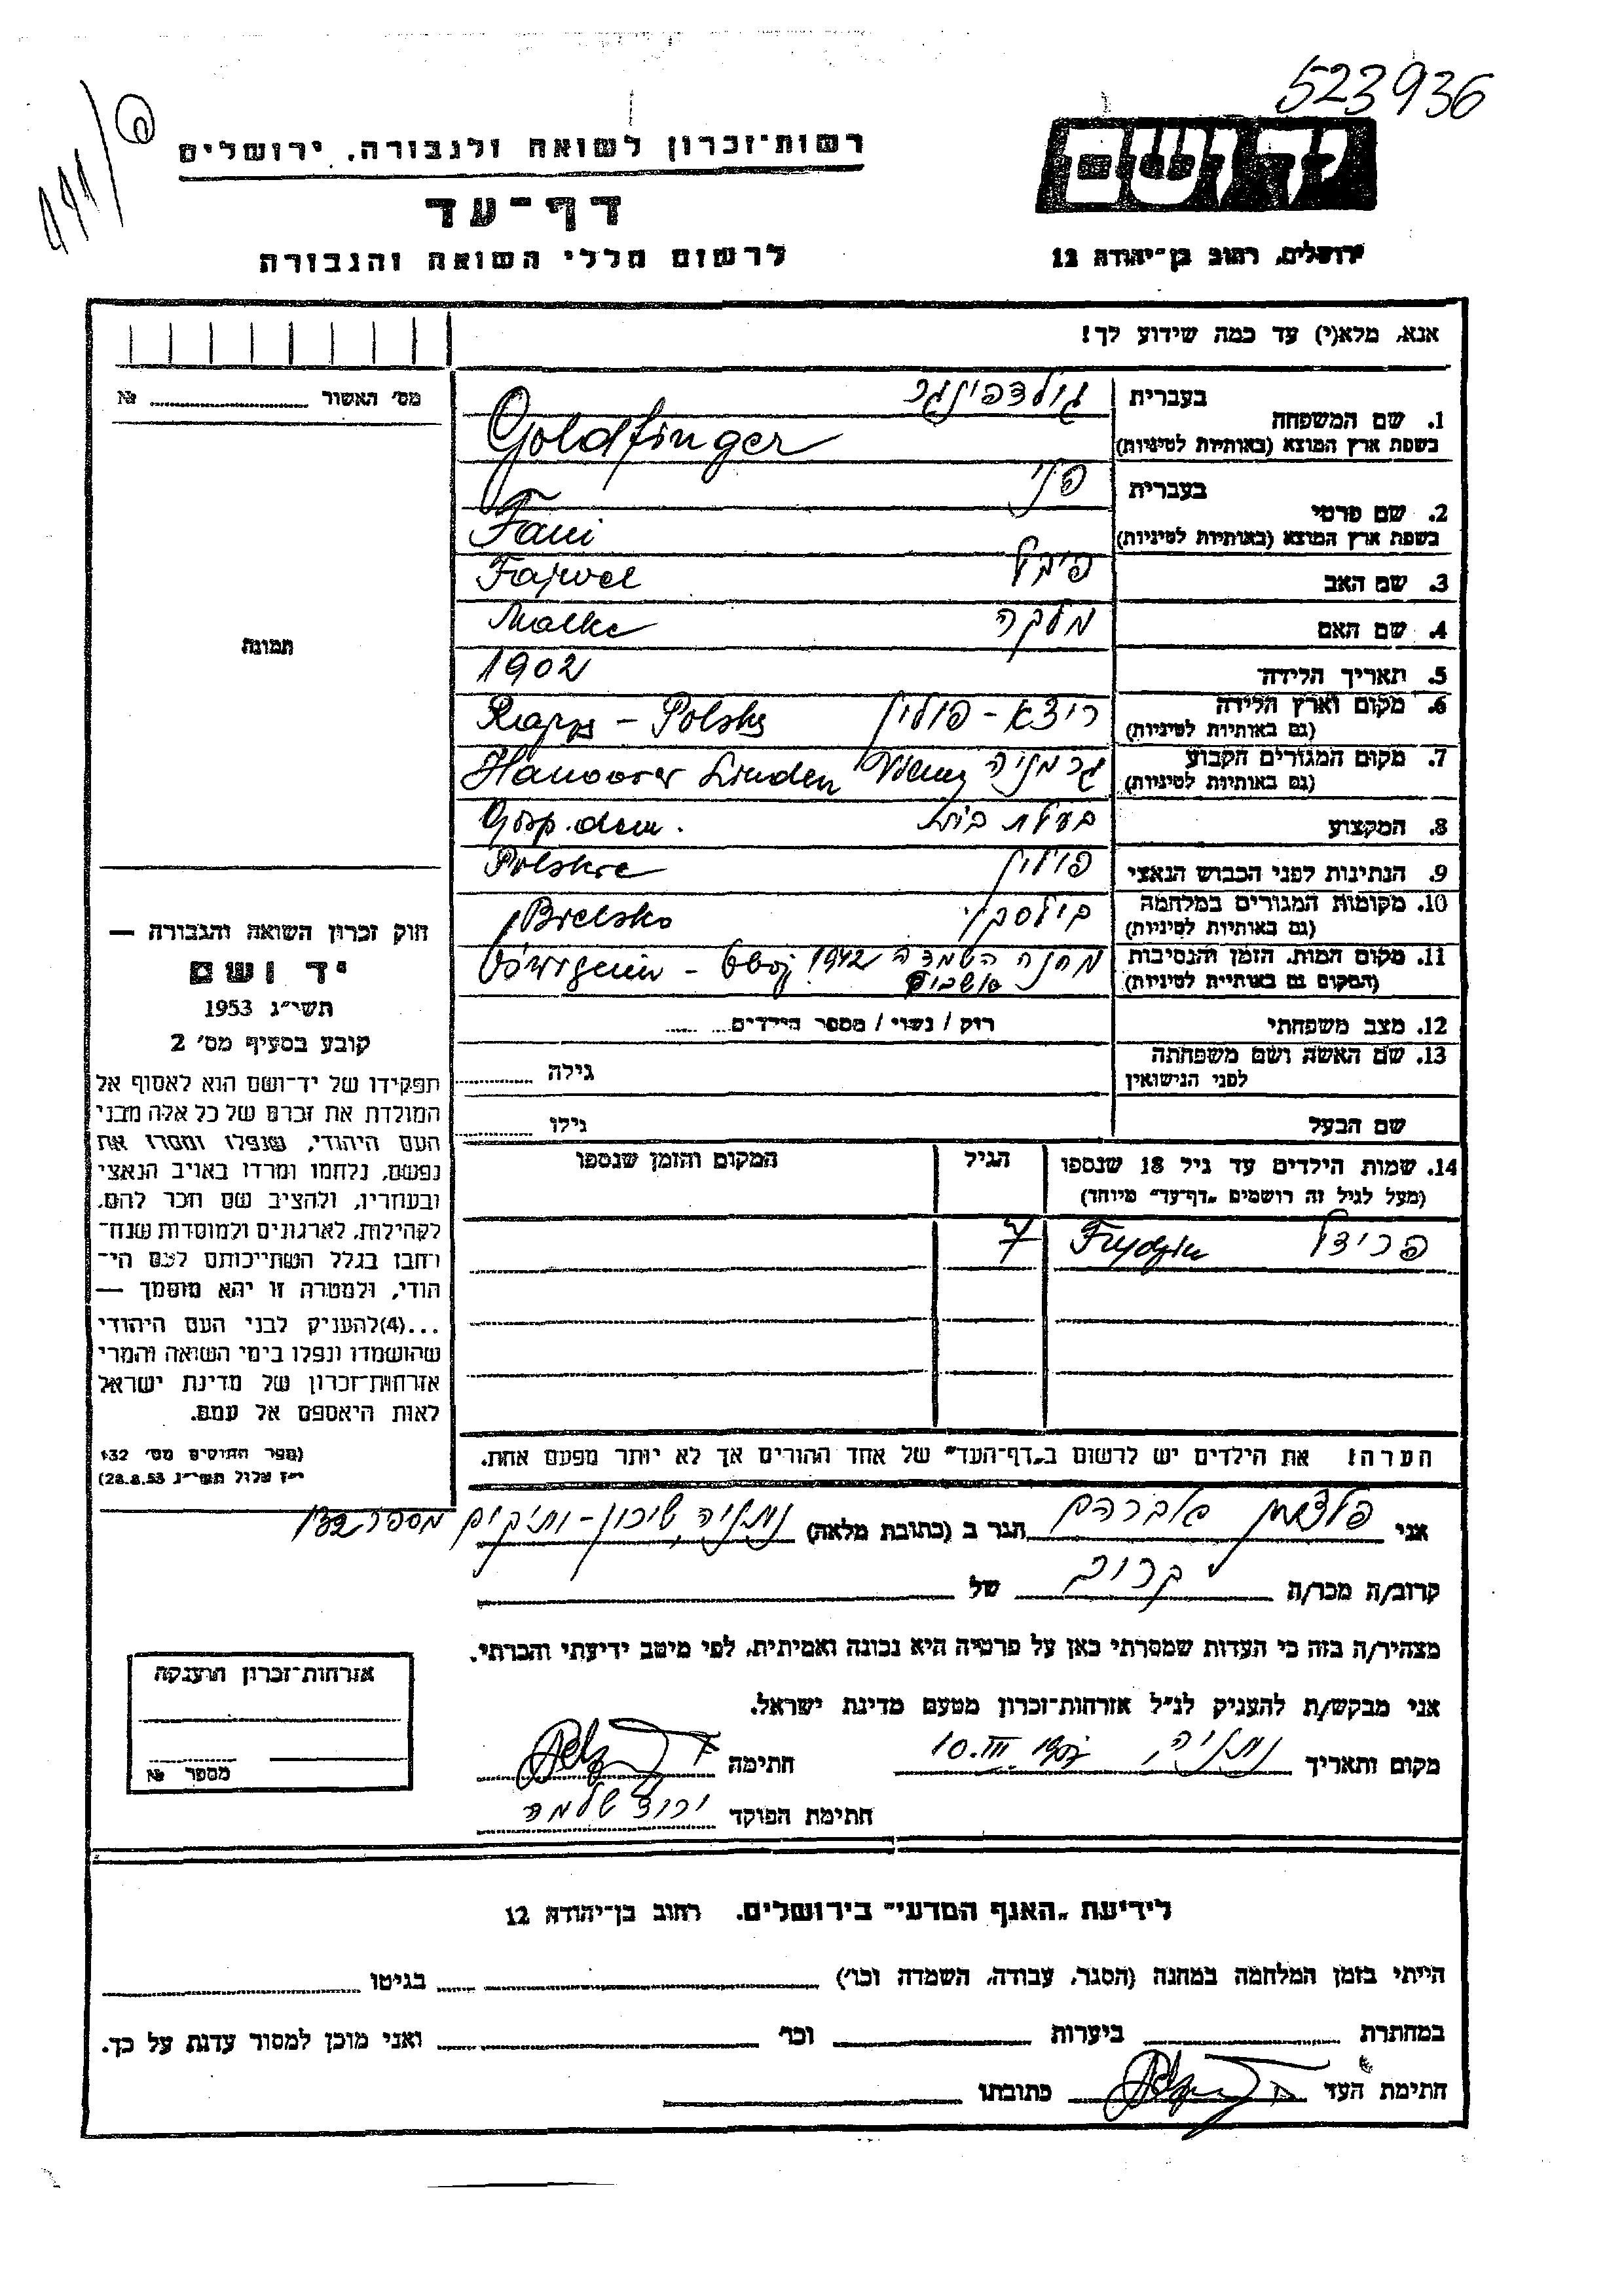 523936
רשות־זכרון לשואה ולגבורה, ירושלים
דף־עד
לרשום חללי השואה והגבורה
יד ושם
ירושלים, רחוב בן־יהודה 12
אנא, מלא(י) עד כמה שידוע לך!
מס׳ האשור № 
1. שם המשפחה בעברית גולדפינגר
בשפת ארץ המוצא (באותיות לטיניות) Goldfinger
2. שם פרטי בעברית פני
בשפת ארץ המוצא (באותיות לטיניות) Fani
3. שם האב פיבל Fajwel
4. שם האם מלכה Malke
5. תאריך הלידה 1902
6. מקום וארץ הלידה ריצא - פולין
(גם באותיות לטיניות) – Polska
7. מקום המגורים הקבוע גרמניה
(גם באותיות לטיניות) Hanoover Linden
8. המקצוע בעלת בית Gosp. dom.
9. הנתינות לפני הכבוש הנאצי פולין Polskie
10. מקומות המגורים במלחמה
(גם באותיות לטיניות) Bielsko
11. מקום המות, הזמן והנסיבות מחנה השמדה 1942
(המקום גם באותיות לטיניות)
12. מצב משפחתי רווק / נשוי / מספר הילדים
13. שם האשה ושם משפחתה
לפני הנישואין גילה
שם הבעל גילו
14. שמות הילדים עד גיל 18 שנספו הגיל המקום והזמן שנספו
(מעל לגיל זה רושמים „דף־עד״ מיוחד)
7
הערה: את הילדים יש לרשום ב„דף־העד״ של אחד ההורים אך לא יותר מפעם אחת.
תמונה
חוק זכרון השואה והגבורה —
יד ושם
תשי״ג 1953
קובע בסעיף מס׳ 2
תפקידו של יד־ושם הוא לאסוף אל
המולדת את זכרם של כל אלה מבני
העם היהודי, שנפלו ומסרו את
נפשם, נלחמו ומרדו באויב הנאצי
ובעוזריו, ולהציב שם וזכר להם,
לקהילות, לארגונים ולמוסדות שנח־
רחבו בגלל השתייכותם לעם הי־
הודי, ולמטרה זו יהא מוסמך —
...(4)להעניק לבני העם היהודי
שהושמדו ונפלו בימי השואה והמרי
אזרחות־זכרון של מדינת ישראל
לאות היאספם אל עמם.
(ספר החוקים מס׳ 132
י״ז אלול תשי״ג 28.8.53)
אני אברהם הגר ב (כתובת מלאה) נתניה, שיכון - ותיקים מספר 132
קרוב/ה מכר/ה קרוב של
מצהיר/ה בזה כי העדות שמסרתי כאן על פרטיה היא נכונה ואמיתית, לפי מיטב ידיעתי והכרתי.
אני מבקש/ת להעניק לנ״ל אזרחות־זכרון מטעם מדינת ישראל.
מקום ותאריך נתניה, 10. III. חתימה
חתימת הפוקד
אזרחות־זכרון הוענקה
מספר №
לידיעת „האגף המדעי״ בירושלים. רחוב בן־יהודה 12
הייתי בזמן המלחמה במחנה (הסגר, עבודה, השמדה וכו׳) בגיטו
במחתרת ביערות וכו׳ ואני מוכן למסור עדות על כך.
חתימת העד כתובתו